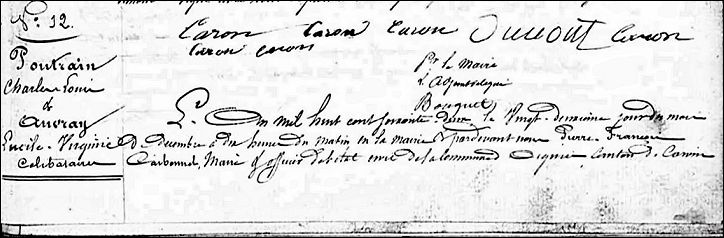 N° 12.
Poutrain
Charles Louis
&
Auvray
Lucile Virginie
Célibataire
Caron Caron Caron Dumont Caron
Caron Caron
Pr le Maire
l'Adjoint délégué
Bouquet
L'An mil huit cent soixante deux, le Vingt-deuxième jour du mois
de Décembre à dix heures du matin en la mairie & pardevant nous Pierre-François
Carbonnel, Maire & officier de l'état civil de la commune d' Canton de Carvin